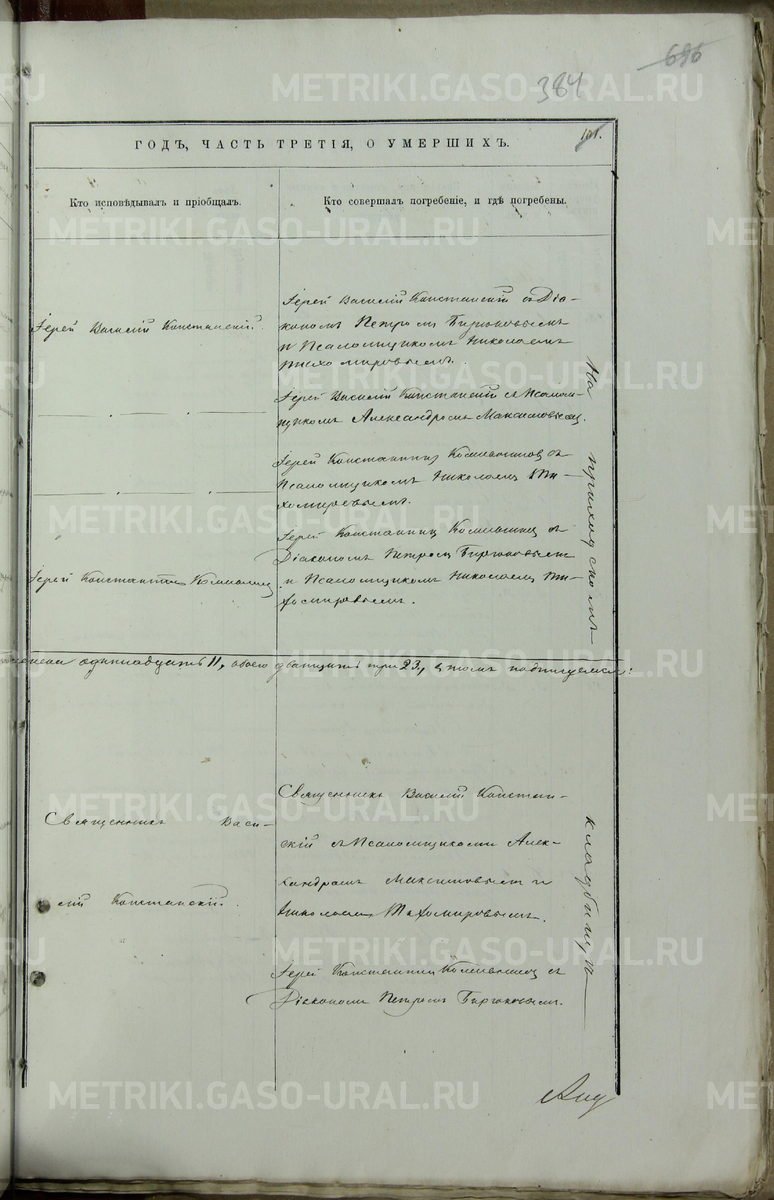 686
384
ГОДЪ, ЧАСТЬ ТРЕТІЯ, О УМЕРШИХЪ.
Кто исповѣдывалъ и пріобщалъ.
Кто совершалъ погребеніе, и гдѣ погребены.
Іерей Василій Констанскій.
Іерей Василій Констанскій съ Діа-
кономъ Петромъ Бирюковымъ
и Псаломщикомъ Николаемъ
Тихомировымъ.
Іерей Василій Констанскій съ Псалом-
щикомъ Александромъ Максимовымъ.
Іерей Константинъ съ
Псаломщикомъ Николаемъ Ти-
хомировымъ.
Іерей Константинъ
Іерей Константинъ съ
Діакономъ Петромъ Бирюковымъ
и Псаломщикомъ Николаемъ Ти-
хомировымъ.
На приходскомъ
одинадцать 11, обоего двадцать три 23, въ томъ подпишемся:
Священникъ Васи-
лій Констанскій.
Священникъ Василій Констан-
скій съ Псаломщиками Алек-
сандромъ Максимовымъ и
Николаемъ Тихомировымъ.
Іерей Константинъ съ
Діакономъ Петромъ Бирюковымъ.
кладбищѣ
METRIKI.GASO-URAL.RU